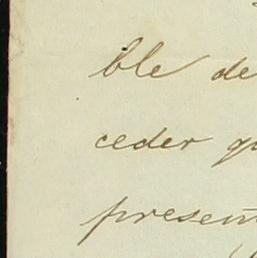 ble de
ceder qu
presen